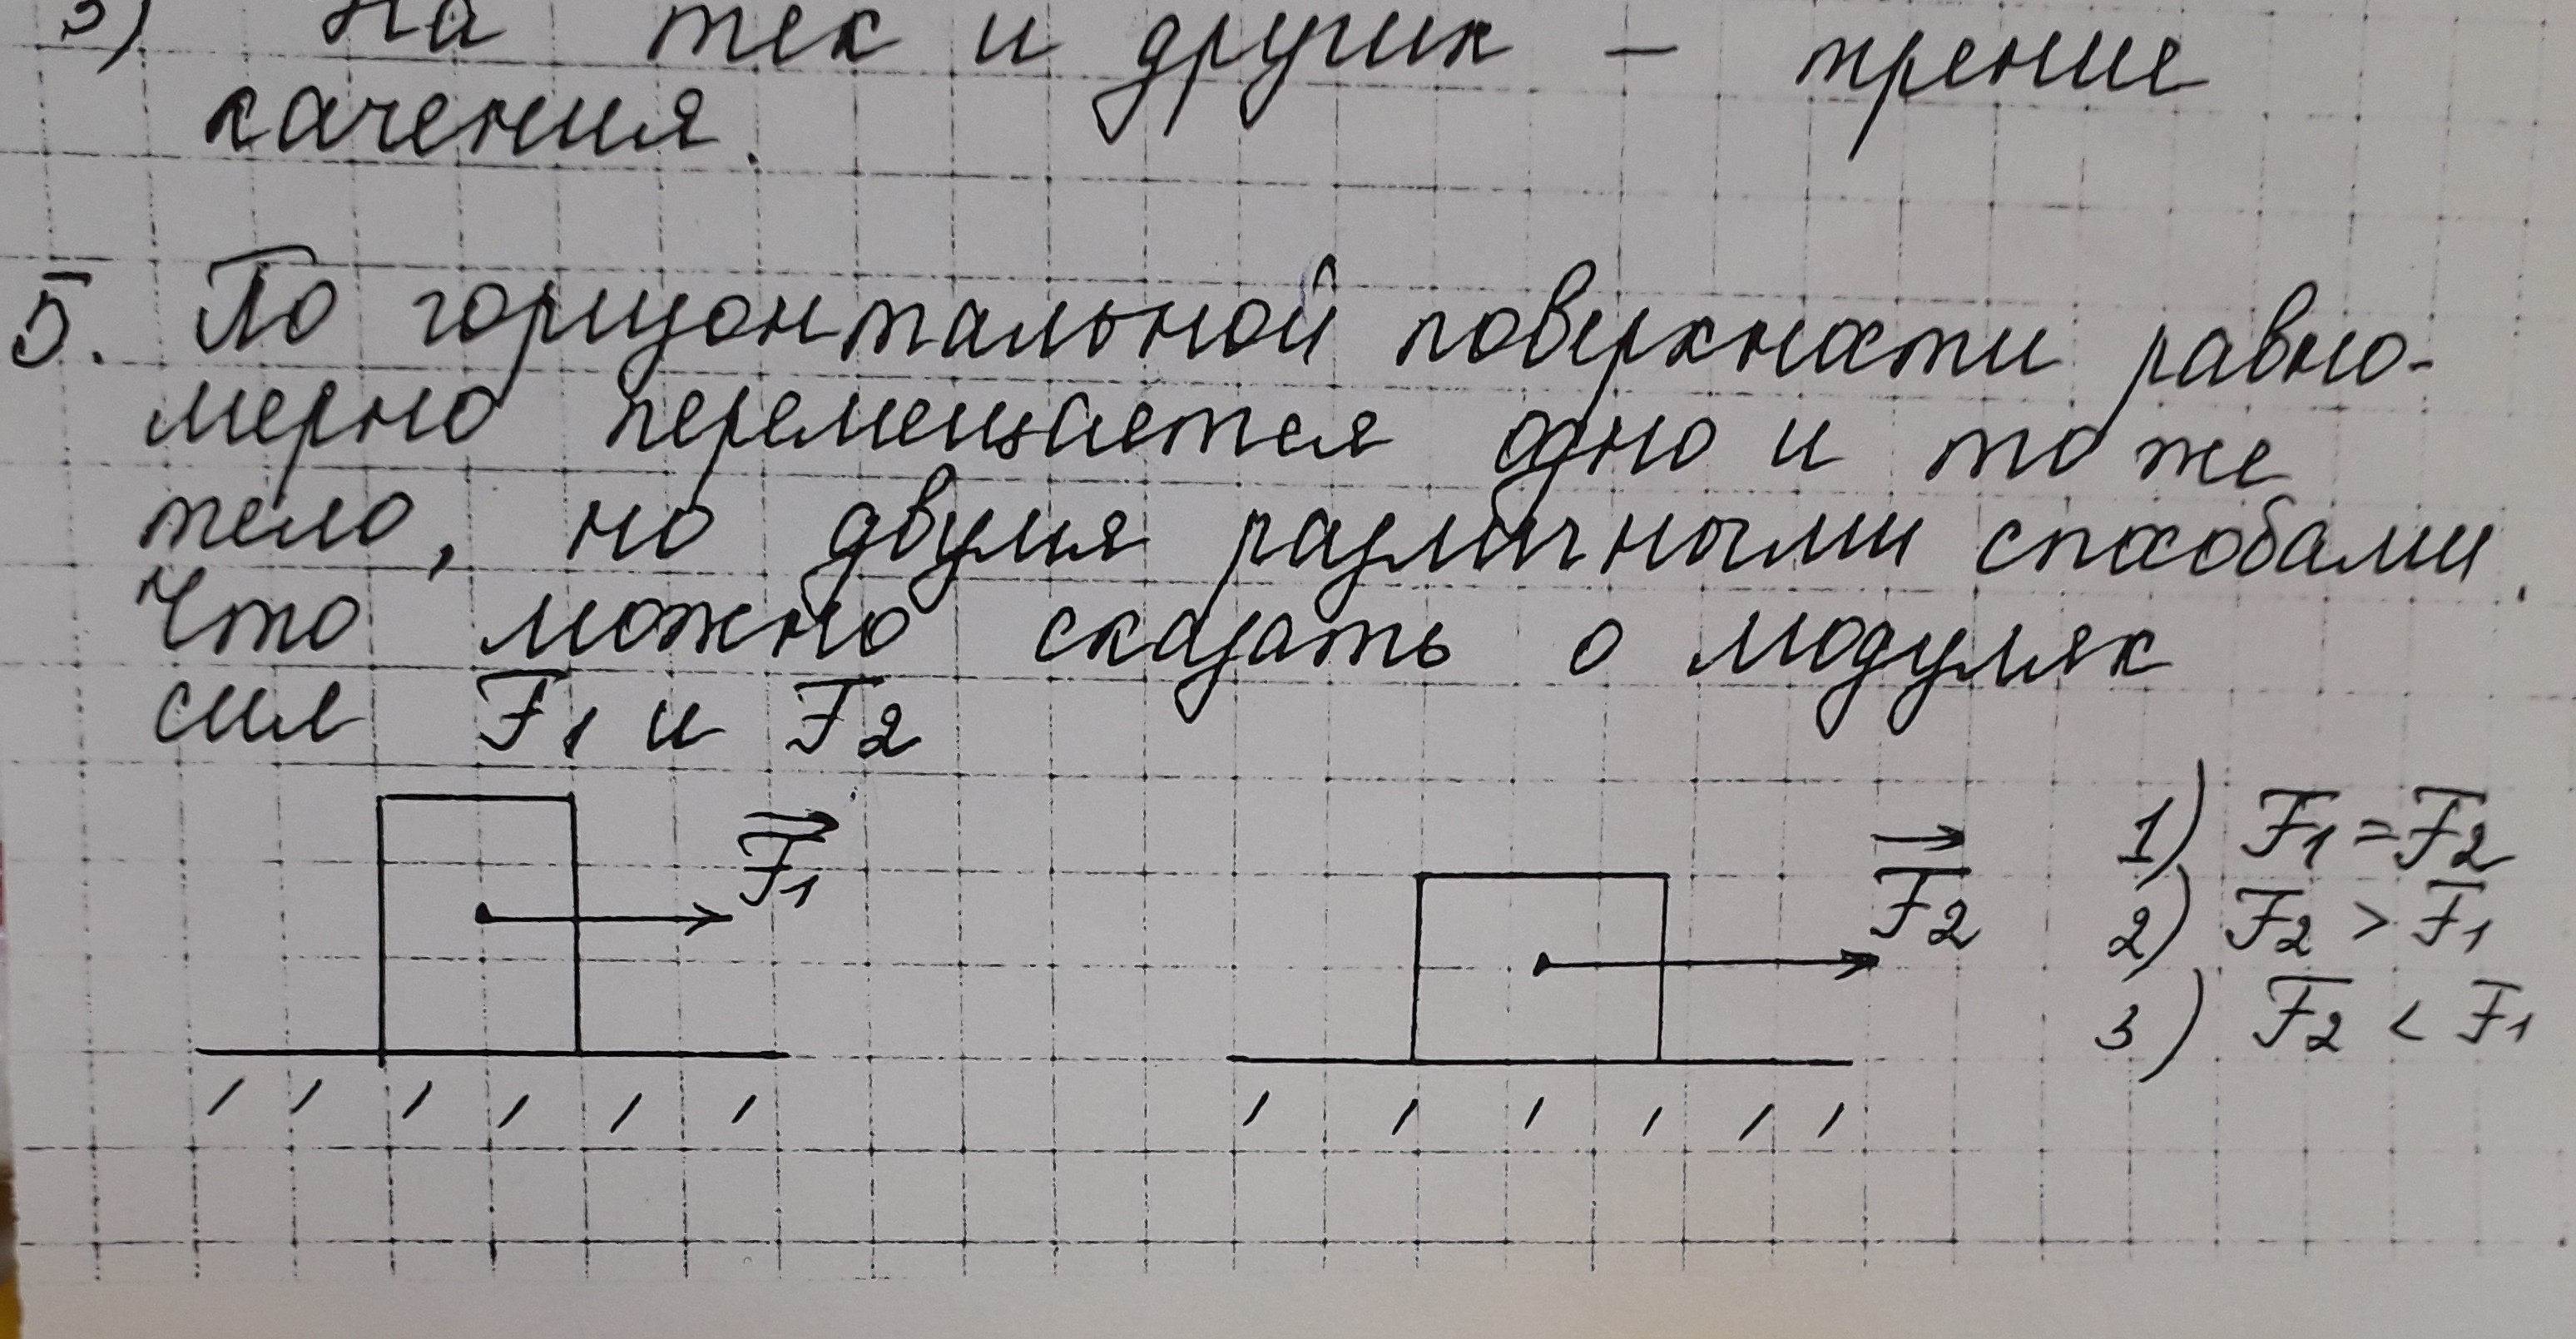 3) На тех и других – трение
качения.
5. По горизонтальной поверхности равно-
мерно перемещается одно и то же
тело, но двумя различными способами.
Что можно сказать о модулях
сил F1 и F2
F1
F2
1) F1 = F2
2) F2 > F1
3) F2 < F1